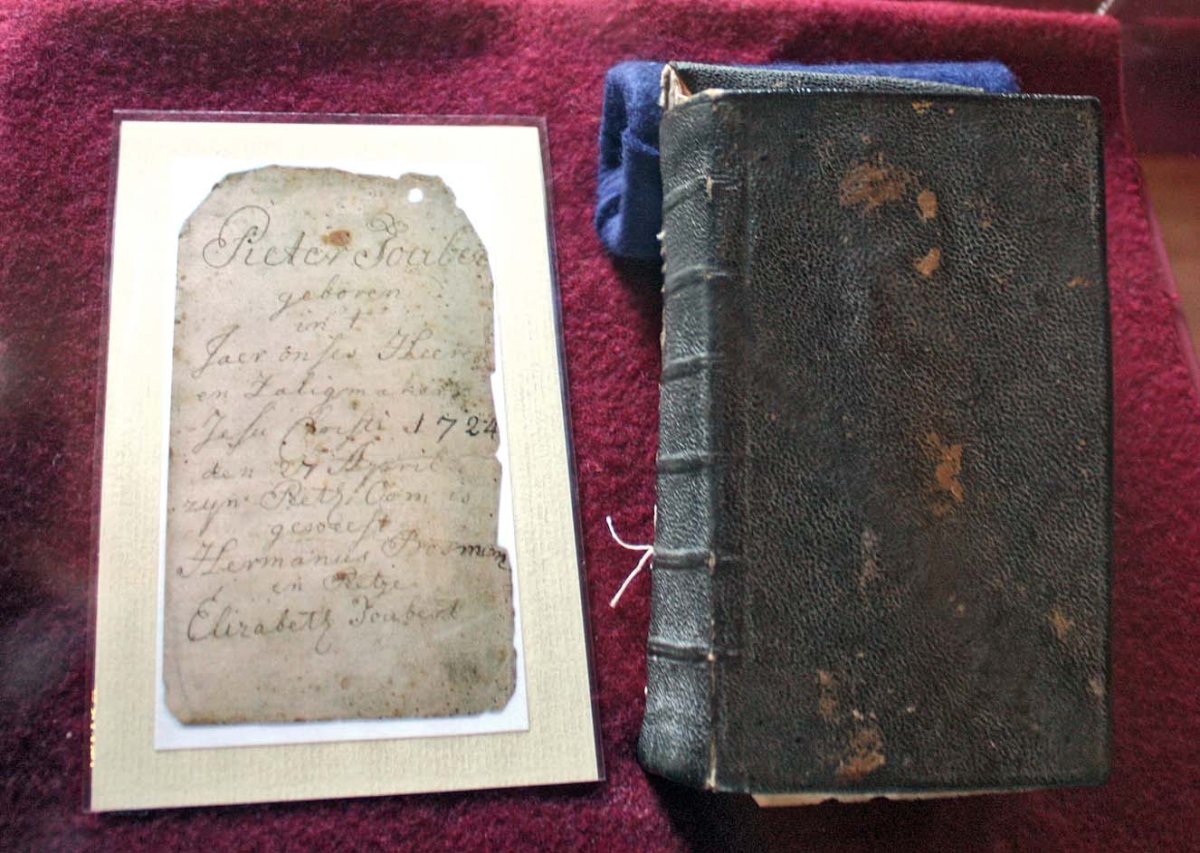 Pieter Jouber
geboren
in t
Jaer onses Heeren
en Zaligmakers
Jesu Christi 1724
den 27 April
zyn Com is
geweest
Hermanus Bosman
en
Elizabeth Joubert